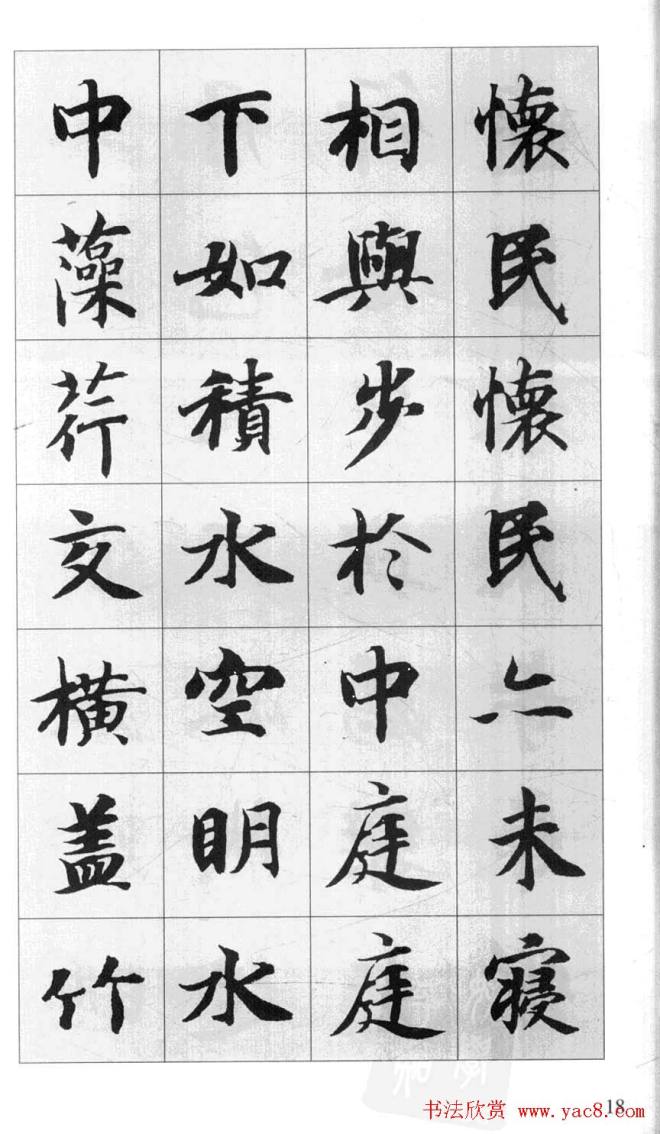 懷民懷民亦未寢
相與步於中庭庭
下如積水空明水
中藻荇交橫蓋竹
18
书法欣赏 www.yac8.com